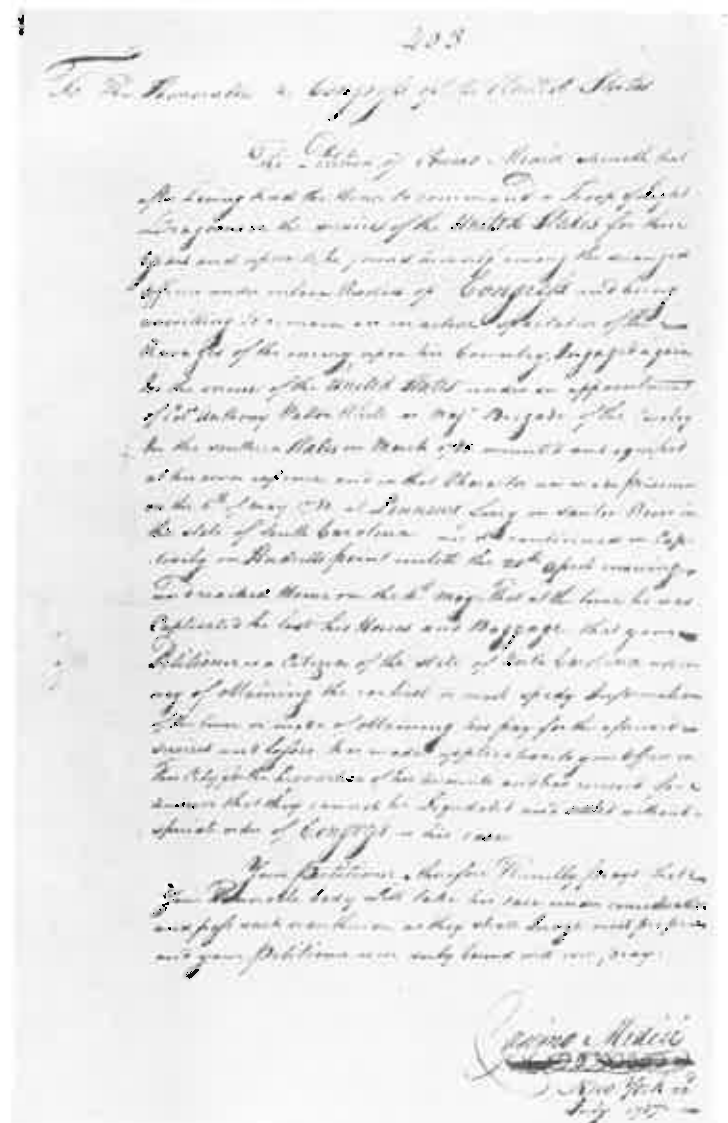 203
To The Honorable the Congress of the United States
The Petition of Cosimo Medici sheweth that
after having had the Honor to command a Troop of Light
Dragoons in the service of the United States for three
Years and upon being
officers under Resolution of Congress and being
unwilling to remain an inactive spectator of the
Ravages of the enemy upon his Country, Engaged again
In the service of the United States under an appointment
of Col. Anthony Walton White as Maj. Brigade of the Cavalry
In the southern States in March 1780 mounted and equiped
at his own expence and in that Character was made prisoner
on the 6th of May 1780 at Lenews Ferry on Santee River in
the state of South Carolina and continued in Cap-
tivity on Hadrells point untill the 20th April
and reached Home on the May That at the time he was
Captivated he lost his Horses and Baggage. that your
Petitioner is a Citizen of the state of North Carolina
way of obtaining the earliest or most speedy Information
of the time or mode of obtaining his pay for the aforesaid
services not before has made application to your offices in
this City for the of his accounts and has received for
answer that they cannot be liquidated and settled without a
special order of Congress in his case
Your Petitioner therefore Humbly prays that
Your Honorable body will take his case under consideration
and pass such resolution as they shall Judge most proper
and your Petitioner as in duty bound will ever pray.
Cosimo Medici
New York
July 1787